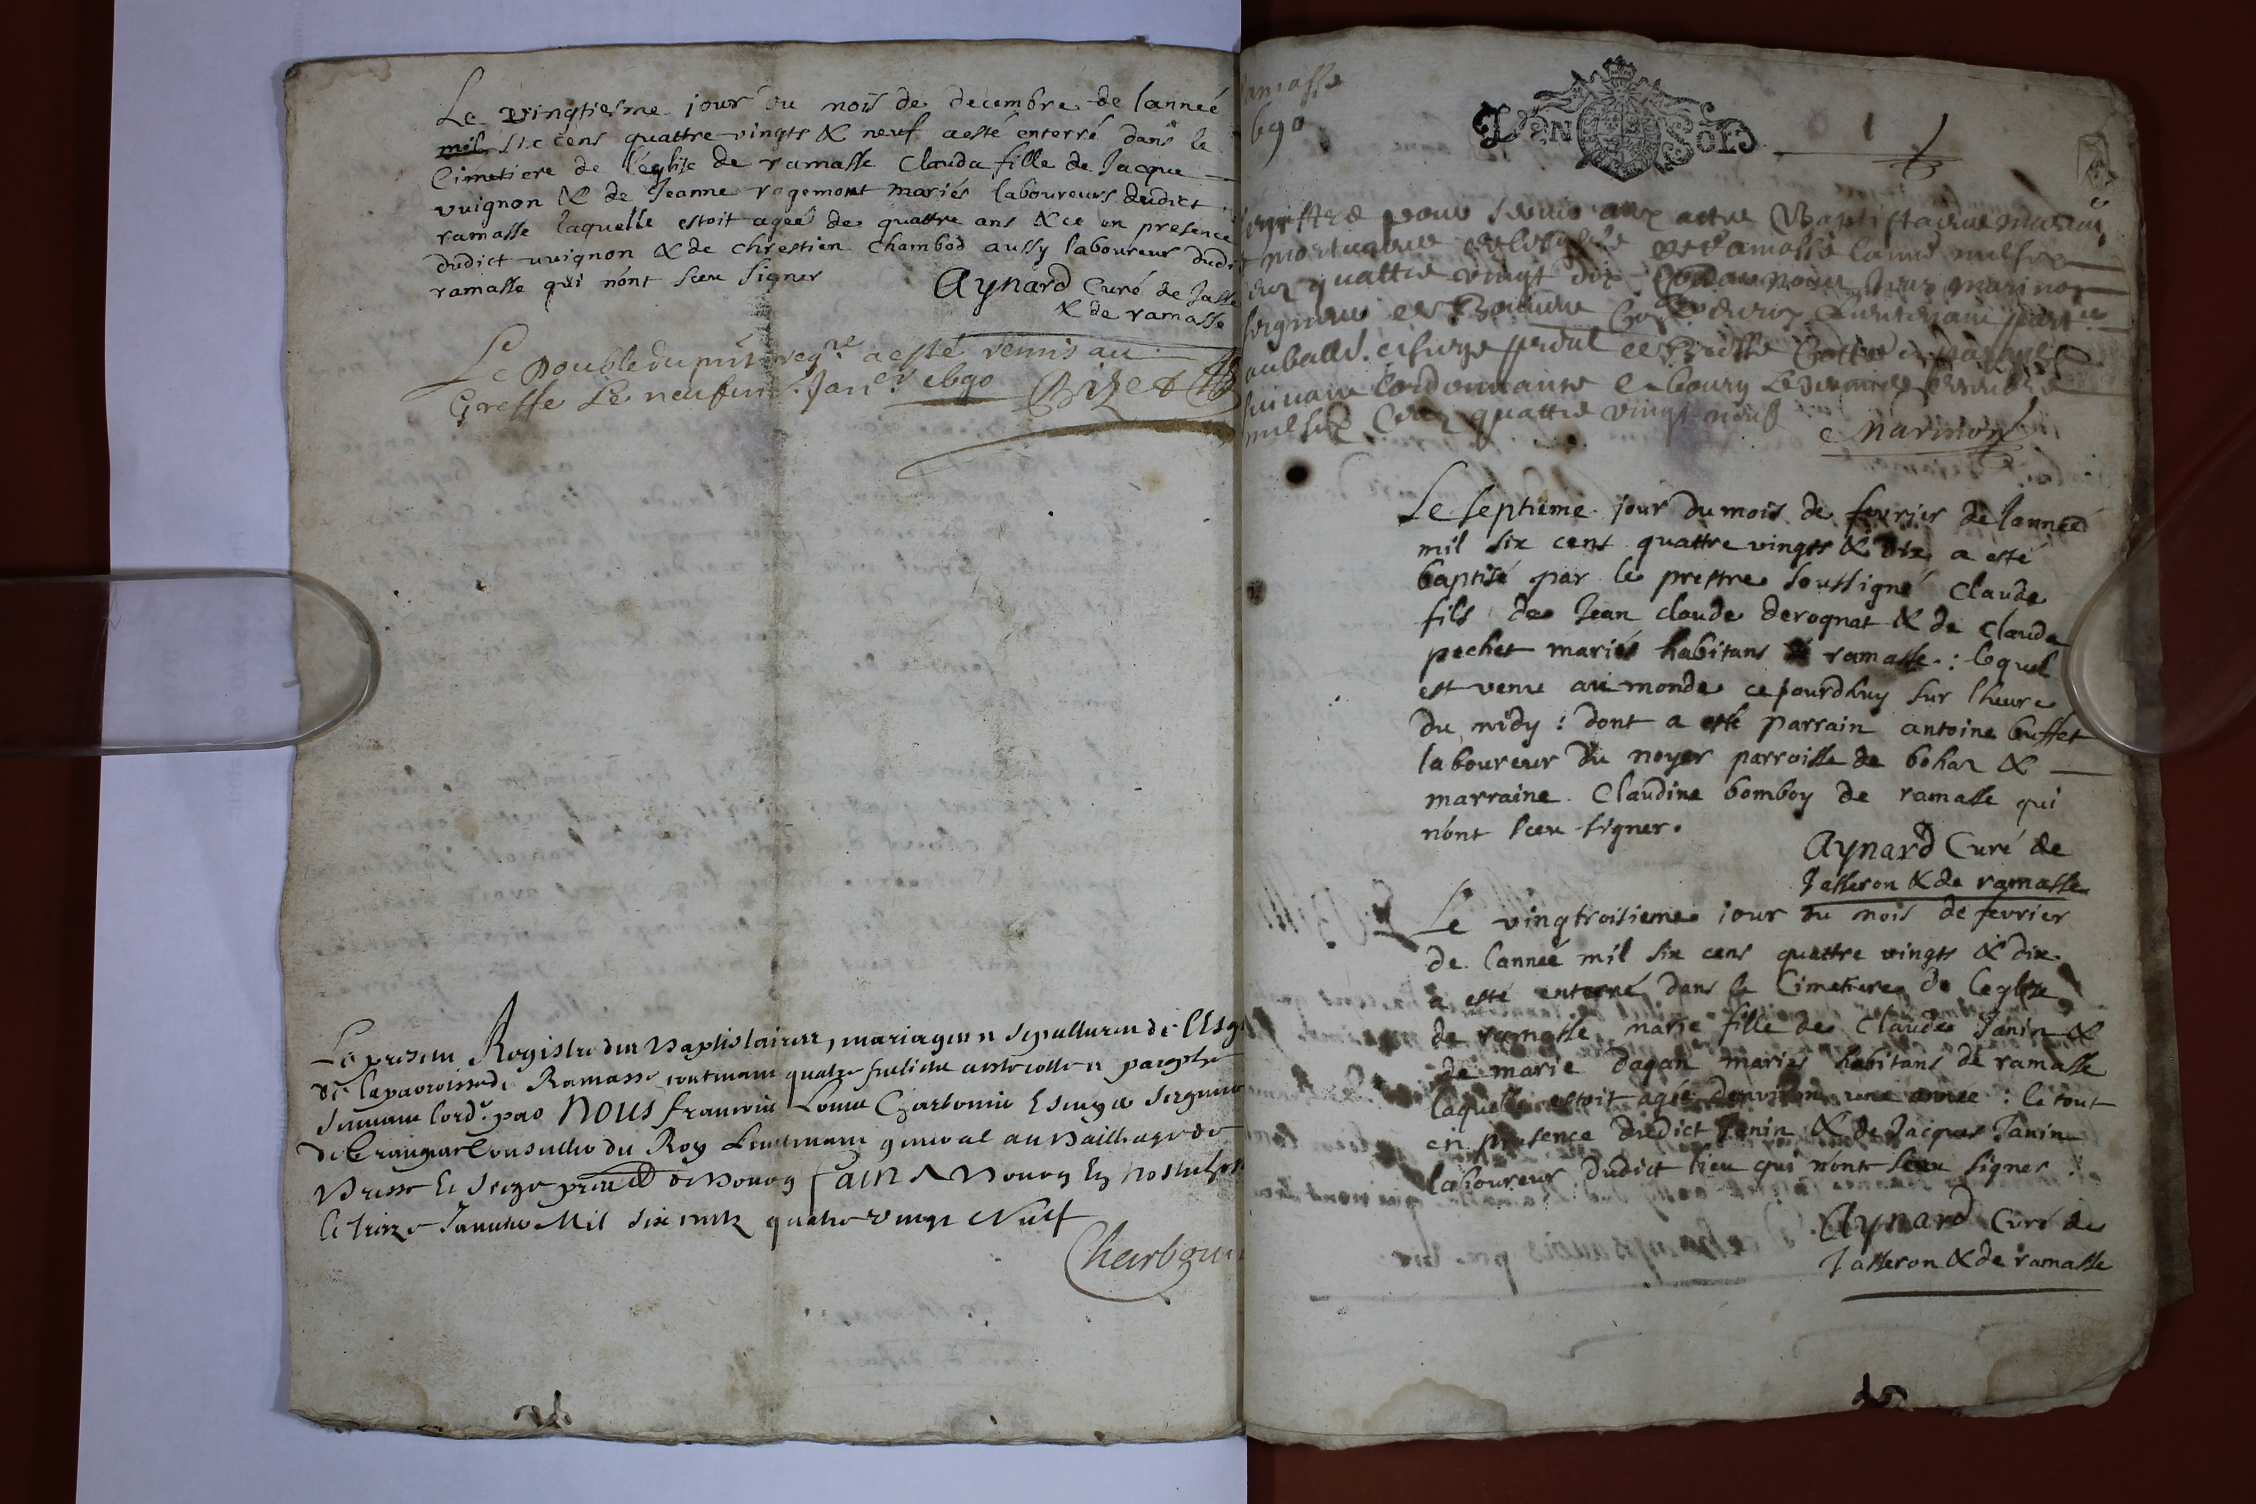 Le vingtiesme jour du mois de decembre de lanneé
mil six cens quattre vingts & neuf a esté enterré dans le
Cimetiere de l'eglise de ramasse Clauda fille de Jacque
vuignon & de Jeanne rogemont mariés laboureurs dudict
ramasse laquelle estoit ageé de quattre ans & ce en presence
dudict vuignon & de chrestien Chambod aussy laboureur dudi
ramasse qui n'ont sceu signer
Aynard Curé de Jasse
& de ramasse
Le Double du pnt regre a esté remis au
Greffe Le neufvie Janer 1690
Le present Registre des Baptistaires, mariages et sepultures de l'Esg
de la paroisse de Ramasse contenant quatre feuillets cotte et paraphe
suivant lord. par Nous
Conseiller du Roy Lieutenant general au Bailliage de
Bresse et siege pnal de Bourg fait a Bourg En nostre hostel
le treize Janvier Mil six cents quatre vingt Neuf
Charbonn
amasse
690
DEN SOLS
1
registre pour servir aux actes Baptistaires maria
mortuaires de leglise de Ramasse lanné mil six
quattre vingt dix par nous
seigneur de
au balle. et siege psdal de Bresse cotté et paraphé
suivant lordonnance a bourg
mil six Cent quattre vingt neuf
Marinon
Le septieme jour du mois de fevrier de lanneé
mil six cens quattre vingts & dix a esté
baptisé par le prestre soussigné Claude
fils de Jean claude derognat & de clauda
pechet mariés habitans de ramasse : lequel
est venu au monde cejourdhuy sur lheure
du midy : dont a esté parrain antoine buffet
laboureur du noyer parroisse de bohaz &
marraine Claudine bomboy de ramasse qui
n'ont sceu signer.
Aynard Curé de
Jasseron & de ramasse
Le vingtroisieme jour du mois de fevrier
de l'anneé mil six cens quattre vingts & dix
a esté enterré dans le Cimetiere de leglise
de ramasse marie fille de Claude Janin &
de marie dagan mariés habitans de ramasse
laquelle estoit ageé denviron une année : le tout
en presence dudict Janin & de Jacques Janin
laboureur dudict lieu qui n'ont sceu signer
Aynard Curé de
Jasseron & de ramasse